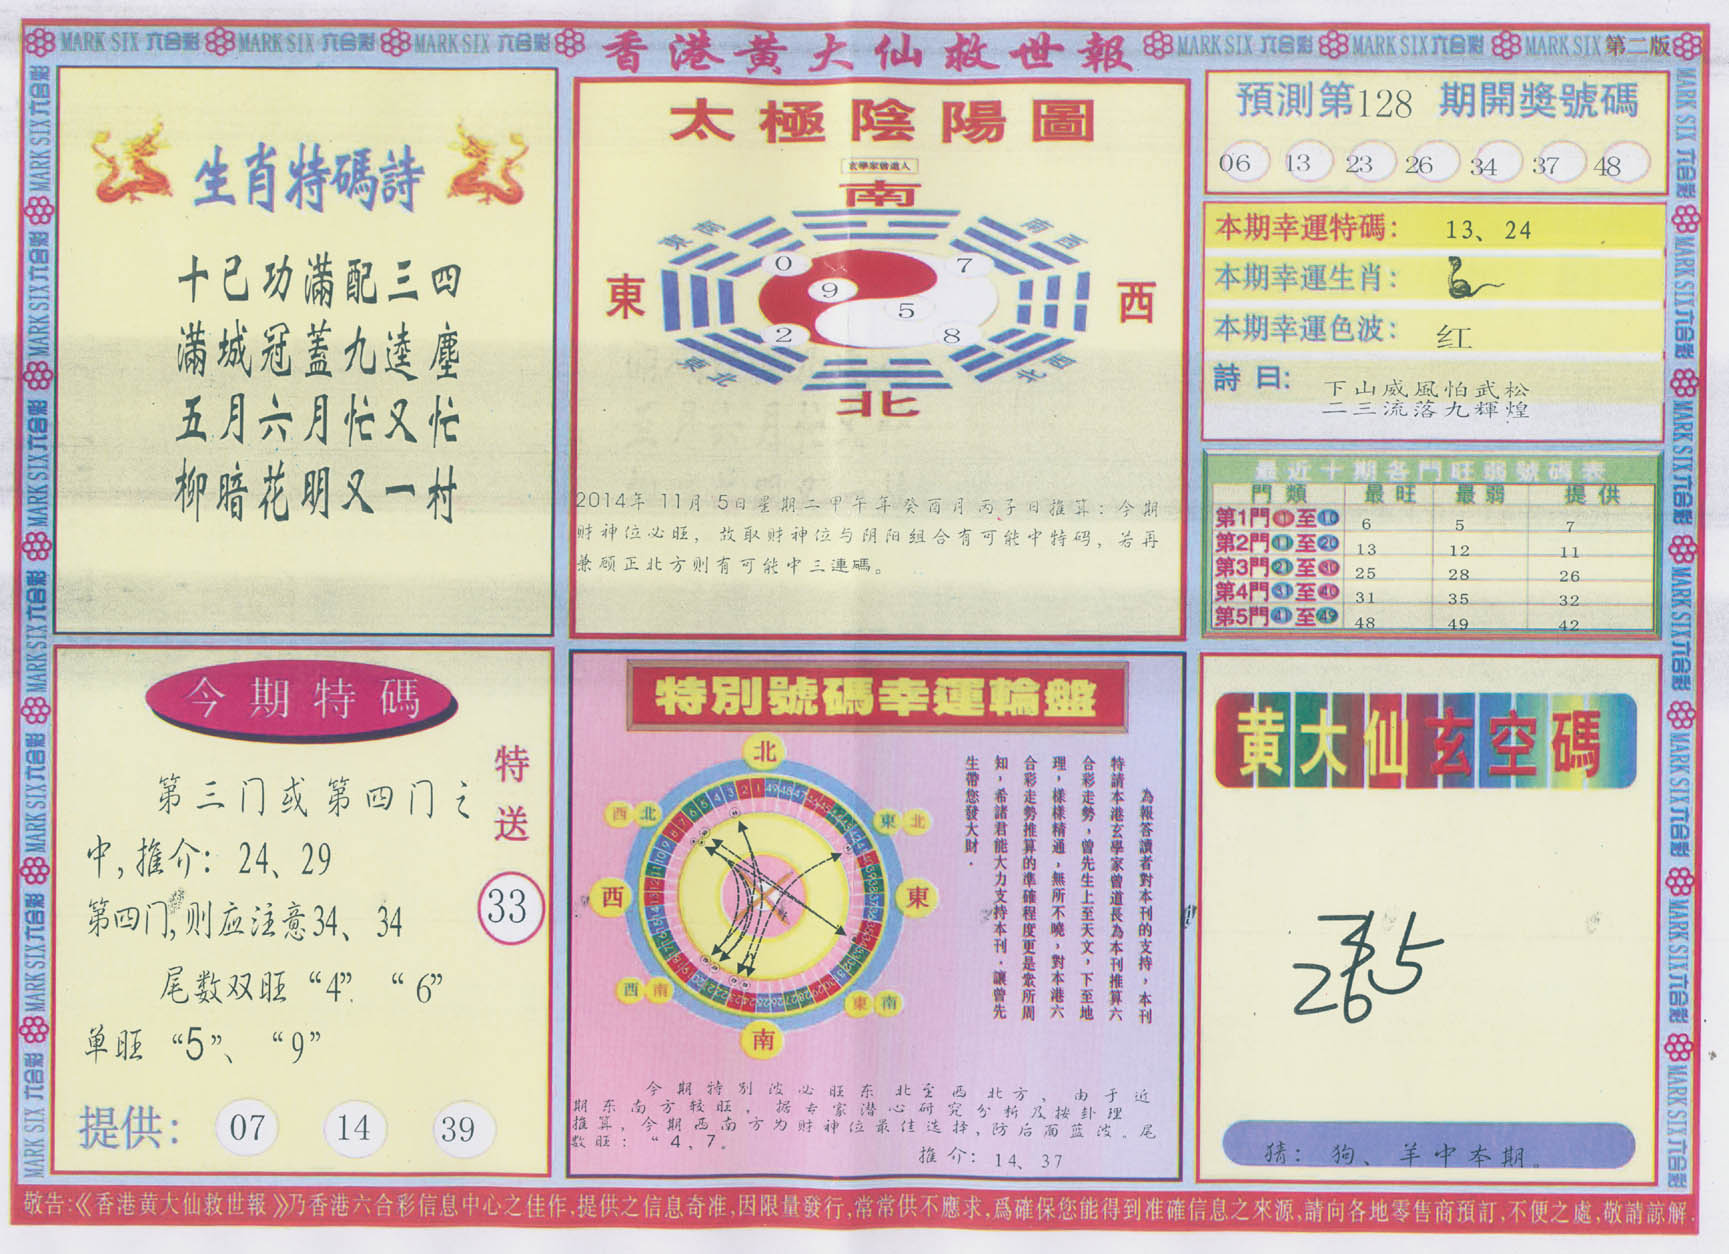 MARK SIX 六合彩 MARK SIX 六合彩 MARK SIX 六合彩
香港黄大仙救世報
MARK SIX 六合彩 MARK SIX 六合彩 MARK SIX 第二版
生肖特碼詩
十已功滿配三四
滿城冠蓋九逵塵
五月六月忙又忙
柳暗花明又一村
太極陰陽圖
玄學家曾道人
南
東南
南西
東
西
0
7
9
5
2
8
東北
北西
北
2014年 11月 5日星期二甲午年癸酉月丙子日推算:今期
财神位必旺,故取财神位与阴阳组合有可能中特码,若再
兼顾正北方则有可能中三連碼。
預測第128 期開獎號碼
06 13 23 26 34 37 48
本期幸運特碼: 13、24
本期幸運生肖:
本期幸運色波: 红
詩曰: 下山威風怕武松
二三流落九輝煌
最近十期各門旺弱號碼表
門類 最旺 最弱 提供
第1門1至10 6 5 7
第2門11至20 13 12 11
第3門21至30 25 28 26
第4門31至40 31 35 32
第5門41至49 48 49 42
今期特碼
第三门或第四门之
中,推介: 24、29
第四门,则应注意34、34
尾数双旺“4”、“6”
单旺“5”、“9”
特送
33
提供: 07 14 39
特別號碼幸運輪盤
北
西北
東北
西
東
西南
東南
南
為報答讀者對本刊的支持,本刊
特請本港玄學家曾道長為本刊推算六
合彩走勢,曾先生上至天文,下至地
理,樣樣精通,無所不曉,對本港六
合彩走勢推算的準確程度更是衆所周
知,希諸君能大力支持本刊,讓曾先
生帶您發大財.
今期特别波必旺东北至西北方、由于近
期东南方较旺,据专家潜心研究分析及按卦理
推算,今期西南方为财神位最佳选择,防后面蓝波。尾
数旺:“4、7。
推介: 14、37
黄大仙玄空碼
2 6 5
猜: 狗、羊中本期。
敬告:《香港黄大仙救世報》乃香港六合彩信息中心之佳作.提供之信息奇准,因限量發行,常常供不應求,爲確保您能得到准確信息之來源,請向各地零售商預訂,不便之處,敬請諒解.